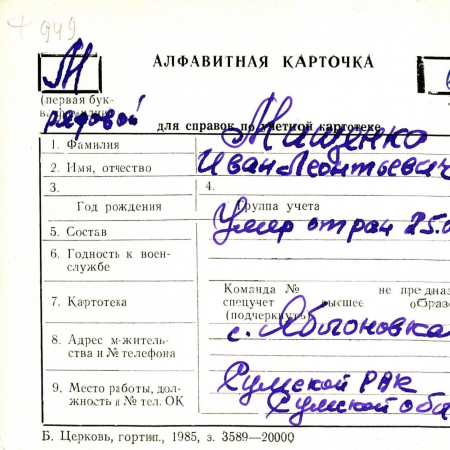 949
М
АЛФАВИТНАЯ КАРТОЧКА
(первая бук-
рядовой
для справок по учетной картотеке
1. Фамилия
Мищенко
2. Имя, отчество
Иван Леонтьевич
3.
4.
Год рождения
Группа учета
5. Состав
Умер от ран 25.0
6. Годность к воен-
службе
7. Картотека
Команда № не предназ
спецучет высшее образо
(подчеркнуть)
8. Адрес м-житель-
ства и № телефона
с. Яблоновка
9. Место работы, дол-
жность и № тел. ОК
Сумской РВК
Сумской обл
Б. Церковь, гортип., 1985, з. 3589—20000